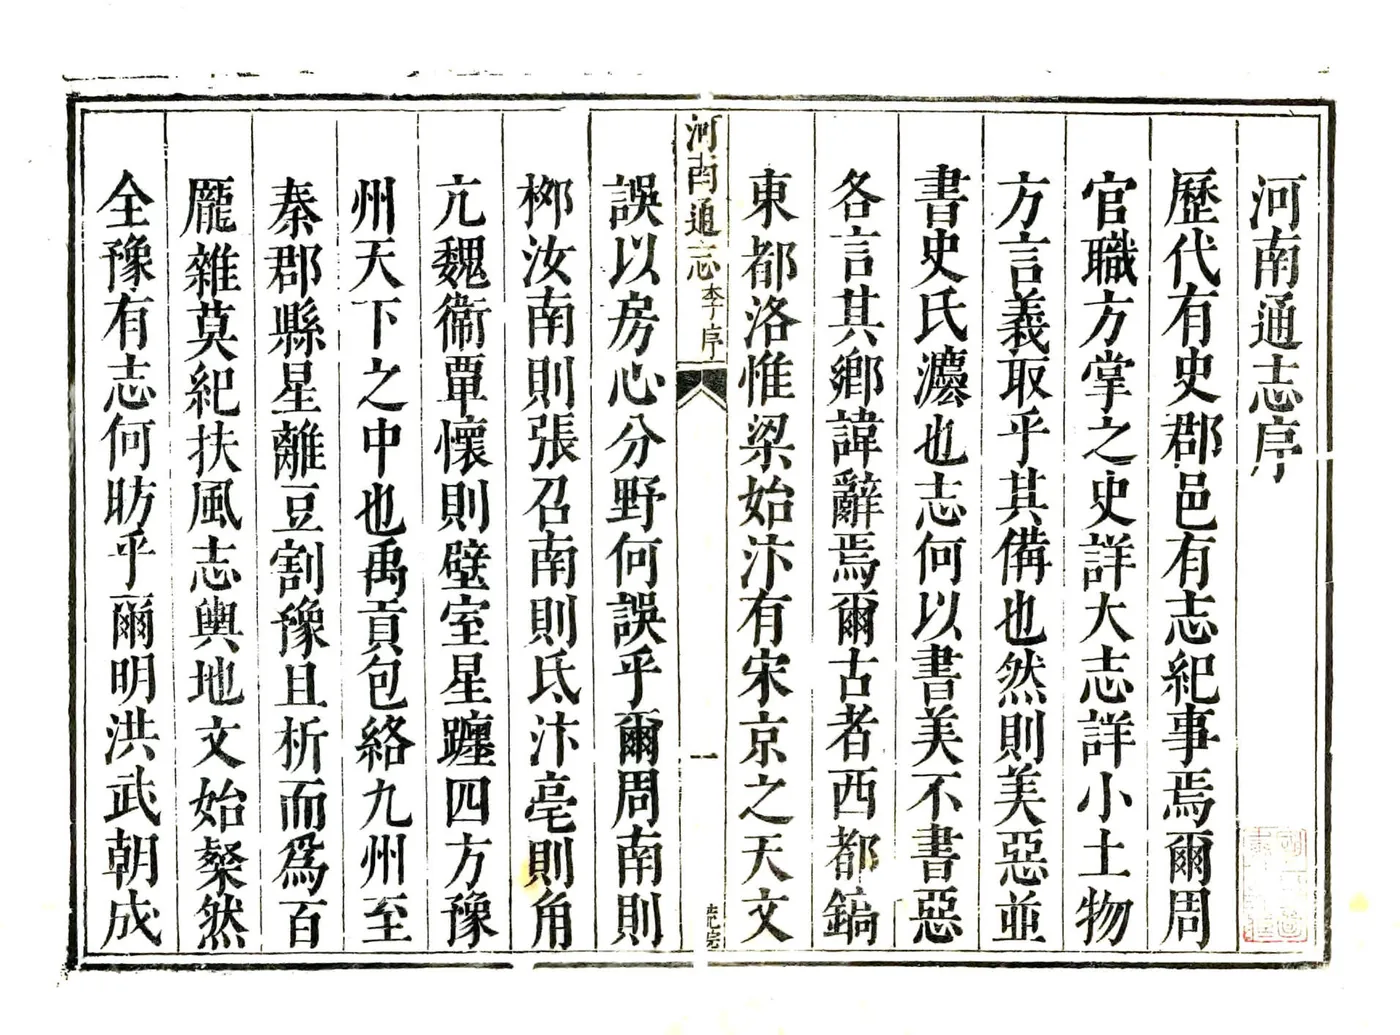 河南通志序
歷代有史郡邑有志紀事焉爾周
官職方掌之史詳大志詳小土物
方言義取乎其備也然則美惡並
書史氏灋也志何以書美不書惡
各言其鄉諱辭焉爾古者西都鎬
東都洛惟梁始汴有宋京之天文
河南通志 李序
一
誤以房心分野何誤乎爾周南則
栁汝南則張召南則氐汴亳則角
亢魏衞覃懷則壁室星躔四方豫
州天下之中也禹貢包絡九州至
秦郡縣星離豆割豫且析而爲百
龎雜莫紀扶風志輿地文始粲然
全豫有志何昉乎爾明洪武朝成